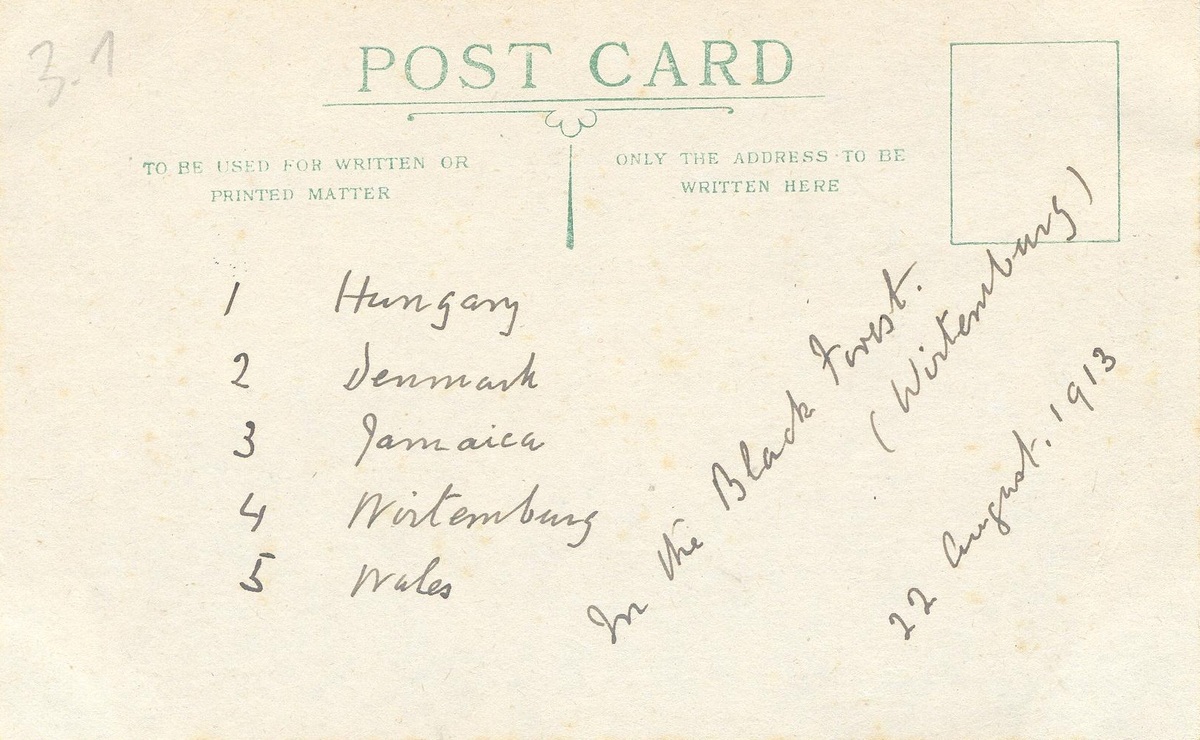 3.1
POST CARD
TO BE USED FOR WRITTEN OR
PRINTED MATTER
ONLY THE ADDRESS TO BE
WRITTEN HERE
1 Hungary
2 Denmark
3 Jamaica
4 Wirtemburg
5 Wales
In the Black Forest.
(Wirtemburg)
22 August. 1913